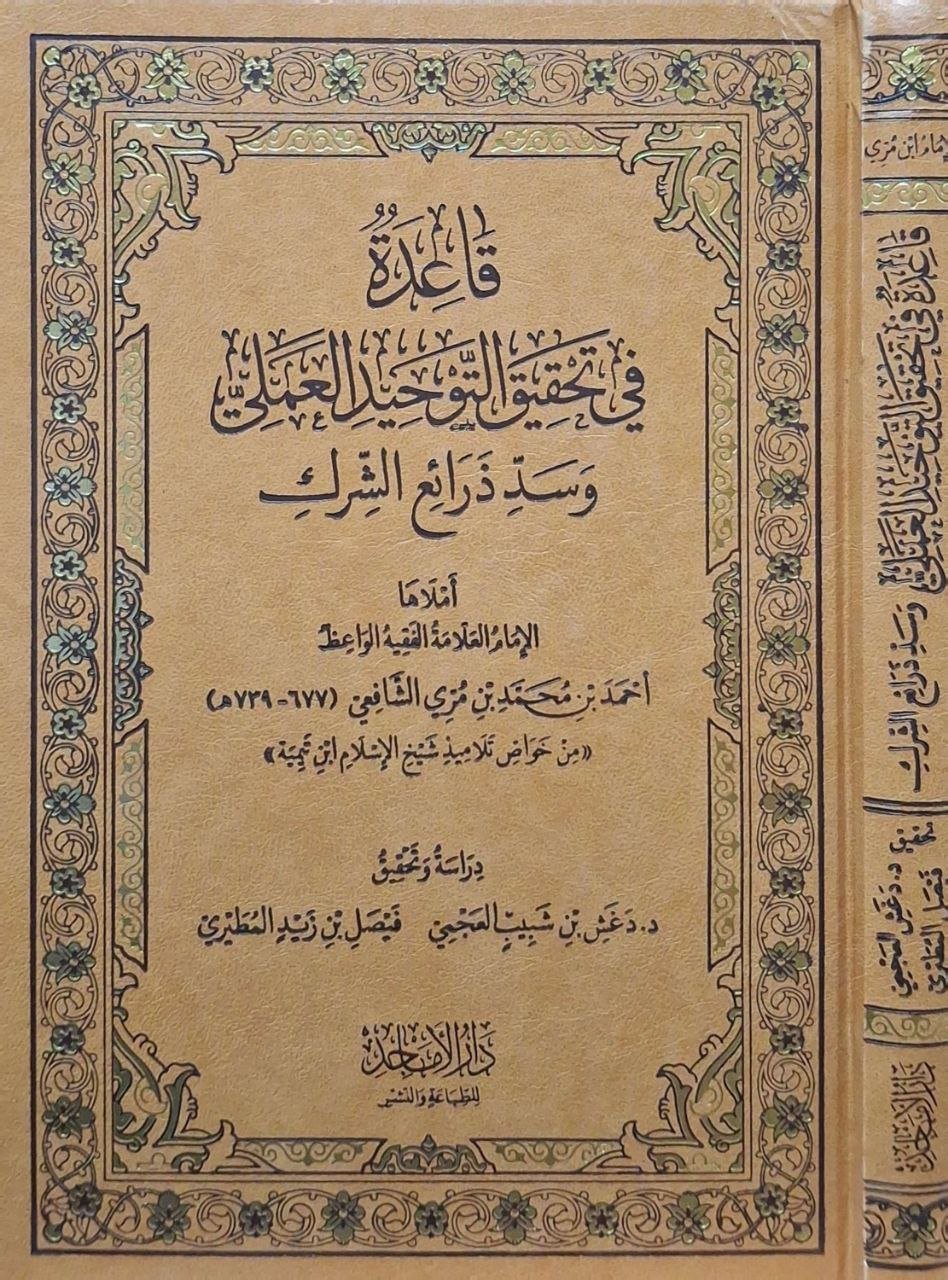 قَاعِدَةٌ
فِي تَحْقِيقِ التَّوْحِيدِ العَمَلِيِّ
وَسَدِّ ذَرَائِعِ الشِّركِ
أَمْلَاهَا
الإِمَامُ العَلَّامَةُ الفَقِيهُ الوَاعِظُ
أَحْمَدَ بْنِ مُحَمَّدِ بْنِ مُرِّي الشَّافِعِيِّ (٦٧٧-٧٣٩هـ)
«مِنْ خَوَاصِّ تَلَامِيذِ شَيْخِ الإِسْلَامِ ابْنِ تَيْمِيَّة»
دِرَاسَةُ وَتَحْقِيقُ
د. دَغَش بْنِ شَبِيبٍ العَجْمِيّ فَيْصَل بْنِ زَيْدٍ المُطَيْرِيّ
دَارُ الأَمَاجِدِ
لِلطِّبَاعَةِ وَالنَّشْرِ
ابْن مُرِّي
قَاعِدَةٌ فِي تَحْقِيقِ التَّوْحِيدِ العَمَلِيِّ وَسَدِّ ذَرَائِعِ الشِّركِ
تحقيق
د. دَغَش العَجْمِيّ
المُطَيْرِيّ
دَارُ الأَمَاجِدِ